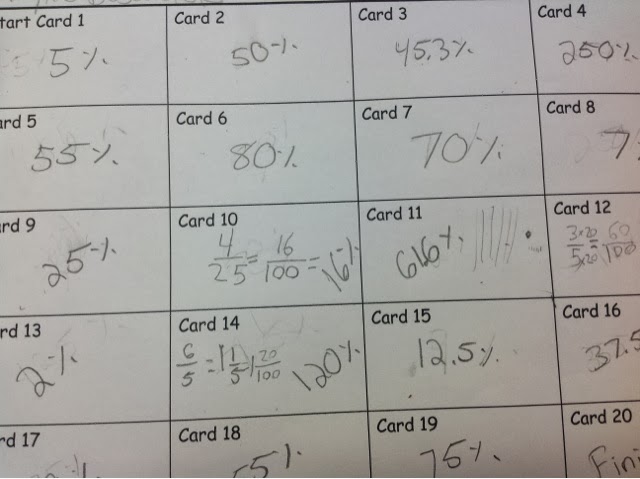 tart Card 1 Card 2 Card 3 Card 4
5% 50% 45.3% 250%
ard 5 Card 6 Card 7 Card 8
55% 80% 70% 7
rd 9 Card 10 Card 11 Card 12
25% 4/25 = 16/100 = 16% 616% 3×20/5×20 = 60/100
rd 13 Card 14 Card 15 Card 16
2% 6/5 = 1 1/5 1 20/100 120% 12.5% 37.5
rd 17 Card 18 Card 19 Card 20
% 55% 75% Fini